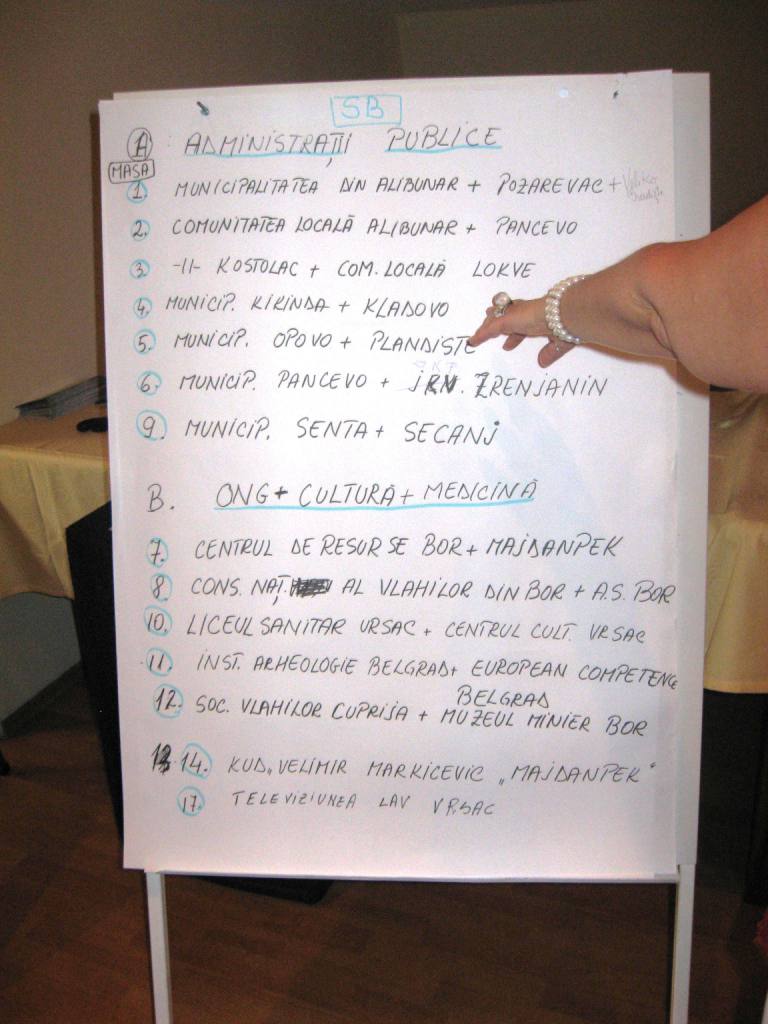 SB
A ADMINISTRAȚII PUBLICE
MASA
1. MUNICIPALITATEA DIN ALIBUNAR + POZAREVAC +
2. COMUNITATEA LOCALĂ ALIBUNAR + PANCEVO
3. -II- KOSTOLAC + COM. LOCALĂ LOKVE
4. MUNICIP. KIKINDA + KLADOVO
5. MUNICIP. OPOVO + PLANDISTE
6. MUNICIP. PANCEVO + ZRENJANIN
9. MUNICIP. SENTA + SECANJ
B. ONG + CULTURĂ + MEDICINĂ
7. CENTRUL DE RESURSE BOR + MAJDANPEK
8. CONS. NAȚ. AL VLAHILOR DIN BOR + A.S. BOR
10. LICEUL SANITAR VRSAC + CENTRUL CULT. VRSAC
11. INST. ARHEOLOGIE BELGRAD + EUROPEAN COMPETENCE
BELGRAD
12. SOC. VLAHILOR CUPRIJA + MUZEUL MINIER BOR
14. KUD „VELIMIR MARKICEVIC „MAJDANPEK"
17. TELEVIZIUNEA LAV VRSAC